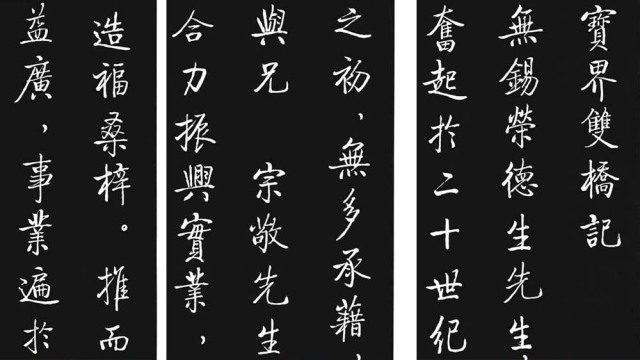 寶界雙橋記
無錫榮德生先生，
奮起於二十世紀
之初，無多承藉，
與兄 宗敬先生
合力振興實業，
造福桑梓。推而
益廣，事業遍於